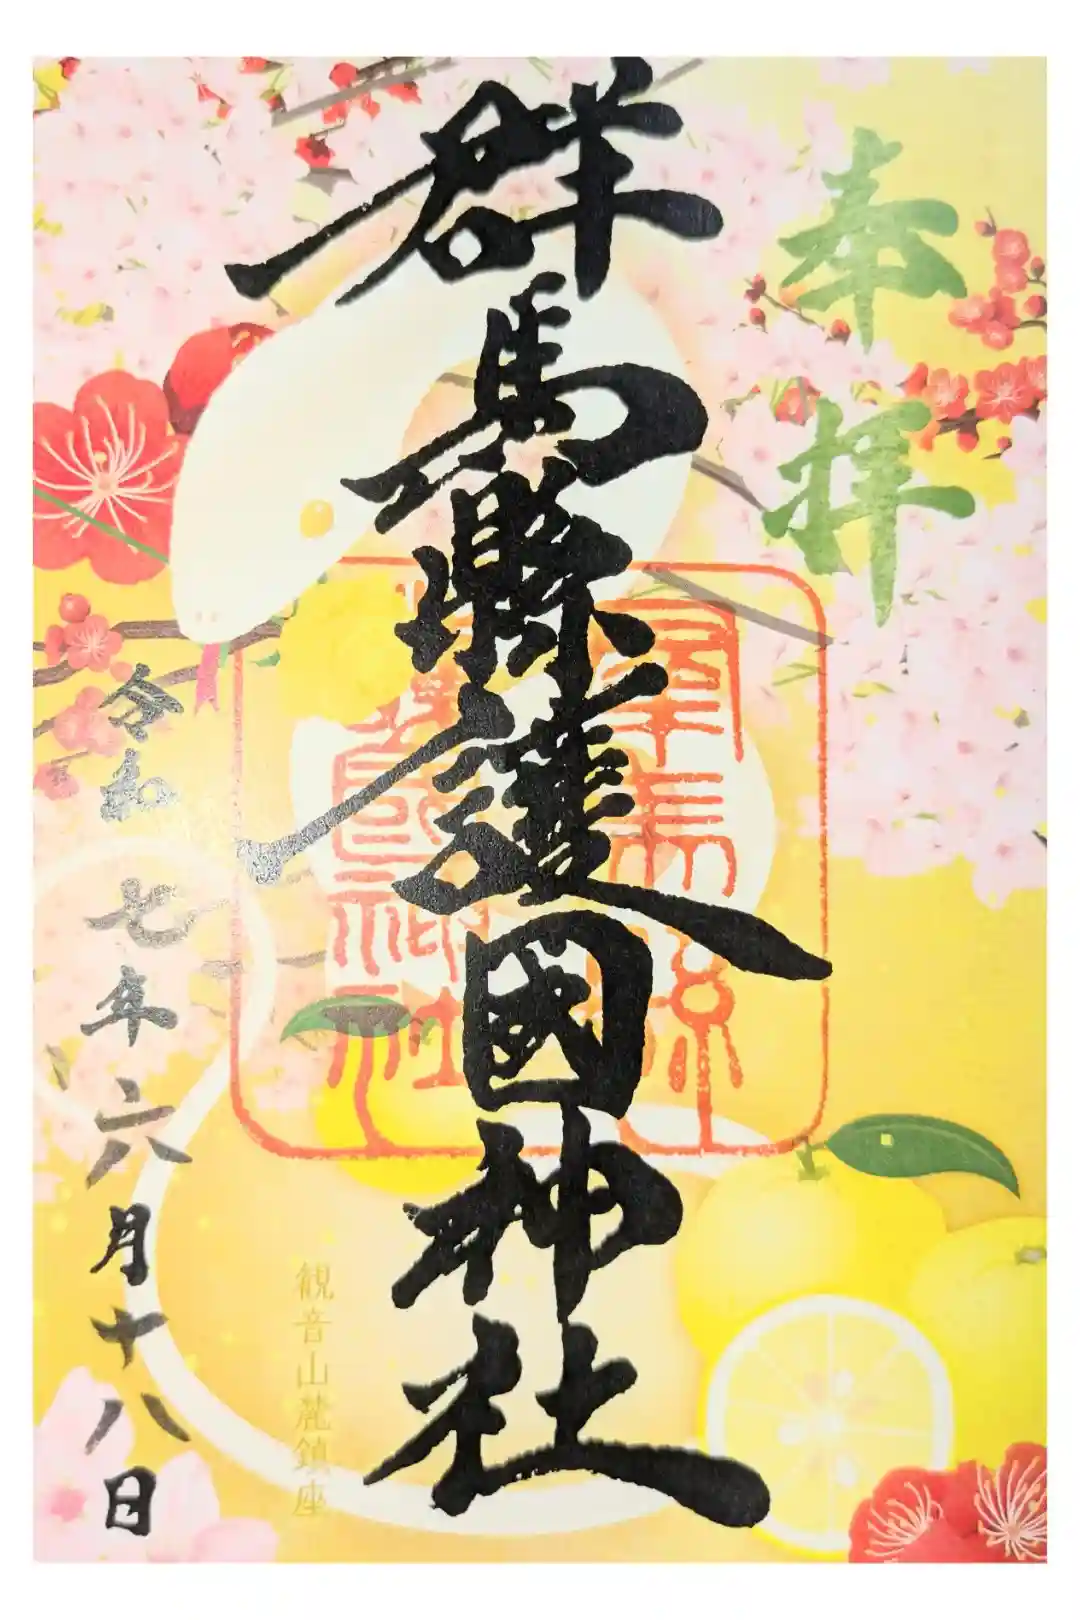 奉拝
群馬縣護國神社
群馬縣
護國神社
観音山麓鎮座
令和七年六月十八日